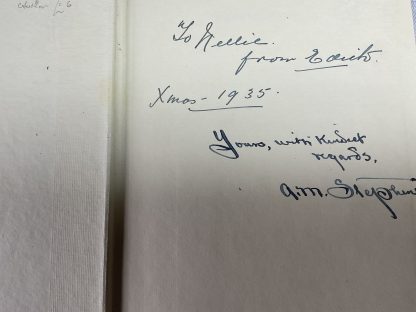 To Nellie.
from Edith.
Xmas - 1935.
Yours, with kindest
regards,
A.M. Stephen